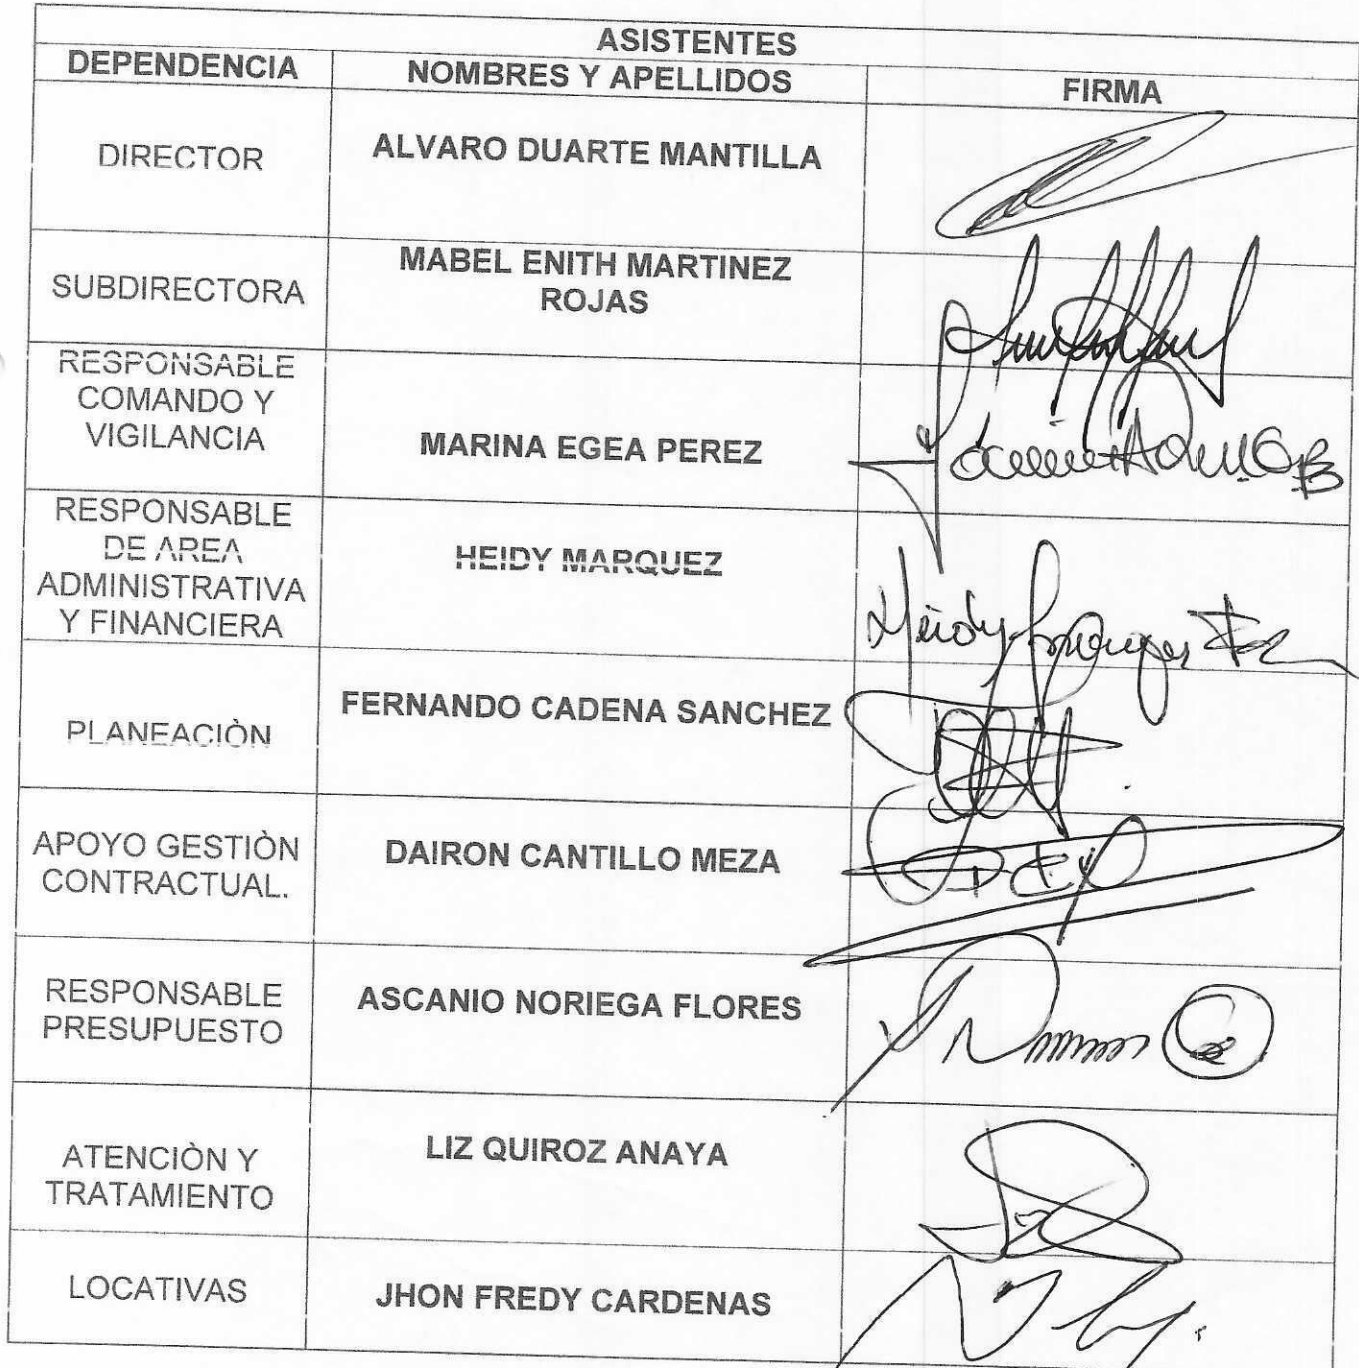 ASISTENTES
DEPENDENCIA NOMBRES Y APELLIDOS FIRMA
DIRECTOR ALVARO DUARTE MANTILLA
SUBDIRECTORA MABEL ENITH MARTINEZ
ROJAS
RESPONSABLE
COMANDO Y
VIGILANCIA MARINA EGEA PEREZ
RESPONSABLE
DE AREA
ADMINISTRATIVA
Y FINANCIERA HEIDY MARQUEZ Heidy
PLANEACIÒN FERNANDO CADENA SANCHEZ
APOYO GESTIÒN
CONTRACTUAL. DAIRON CANTILLO MEZA
RESPONSABLE
PRESUPUESTO ASCANIO NORIEGA FLORES
ATENCIÒN Y
TRATAMIENTO LIZ QUIROZ ANAYA
LOCATIVAS JHON FREDY CARDENAS